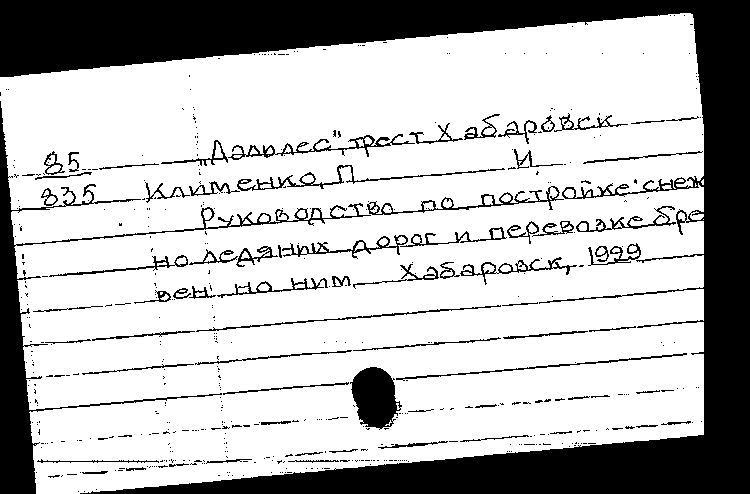 85 „Дальлес", трест Хабаровск
835 Клименко, П И.
Руководство по постройке снеж
но ледяных дорог и перевозке бре
вен но ним Хабаровск, 1929